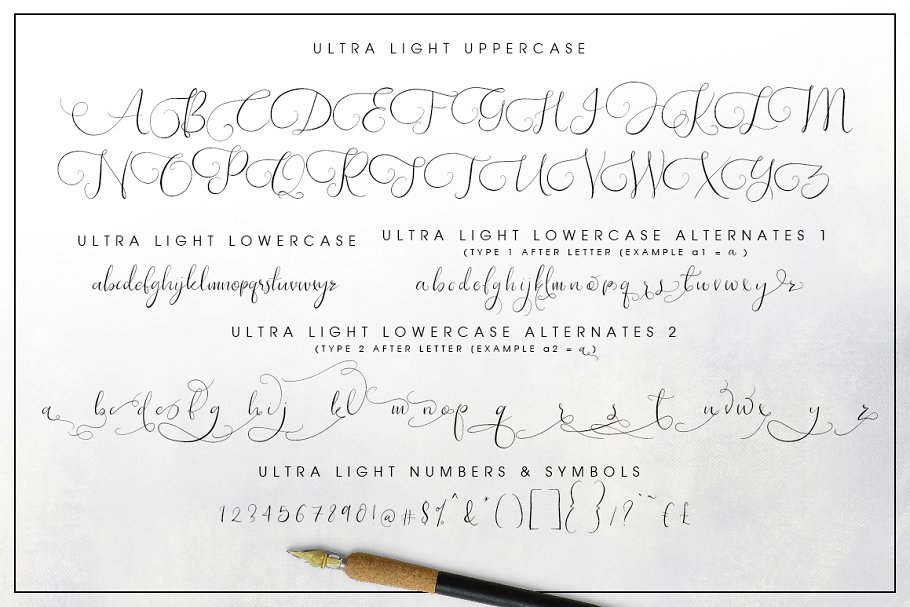 ULTRA LIGHT UPPERCASE
A B C D E F G H I J K L M
N O P Q R S T U V W X Y Z
ULTRA LIGHT LOWERCASE
abcdefghijklmnopqrstuvwxyz
ULTRA LIGHT LOWERCASE ALTERNATES 1
(TYPE 1 AFTER LETTER (EXAMPLE a1 = a )
a b c d e f g h i j k l m n o p q r s t u v w x y z
ULTRA LIGHT LOWERCASE ALTERNATES 2
(TYPE 2 AFTER LETTER (EXAMPLE a2 = a )
a b c d e f g h i j k l m n o p q r s t u v w x y z
ULTRA LIGHT NUMBERS & SYMBOLS
1234567890!@#$%^&*()[]{}/?¨~